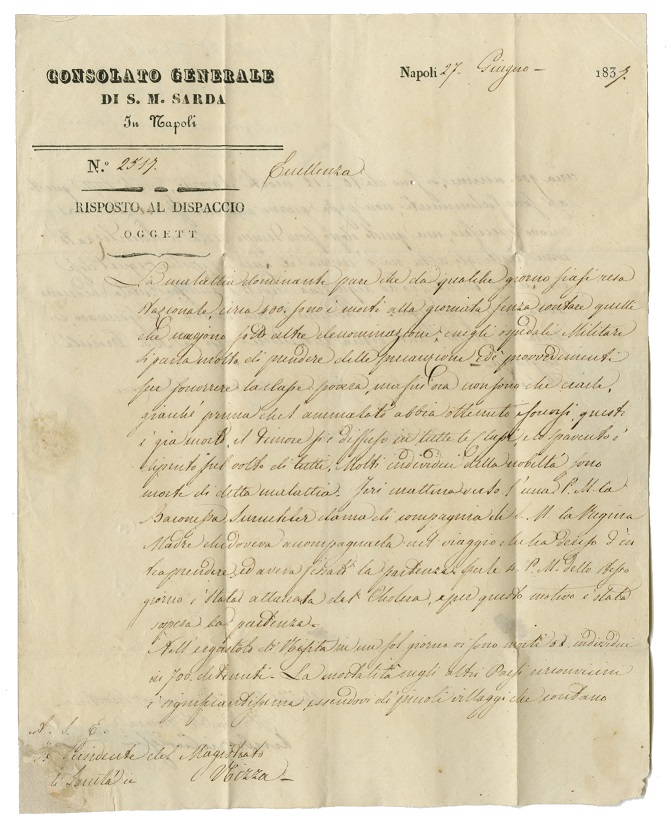 CONSOLATO GENERALE
DI S. M. SARDA
In Napoli
Napoli 27. Giugno 1837.
N.° 2517.
Eccellenza
RISPOSTO AL DISPACCIO
OGGETT
La malattia dominante pare che da qualche giorno siasi resa
stazionaria, circa 400. sono i morti alla giornata senza contare quelli
che vengono sotto altre denominazione, e negli ospedali Militari
Si parla molto di prendere delle precauzione, e di provvedimenti
per soccorrere la classe povera, ma fin ora non sono che ciarle,
giacché prima che l'ammalato abbia ottenuto i soccorsi, questi
è già morto, il timore si è diffuso in tutte le classi, e lo spavento è
dipinto sul volto di tutti. Molti individui della nobiltà sono
morti di detta malattia. Jeri mattina verso l'una P. M. la
Baronessa dama di compagnia di S. M. la Regina
Madre che doveva accompagnarla nel viaggio che ha deciso d'in
traprendere, ed aveva fissato la partenza per le 4. P. M. dello stesso
giorno è stata attaccata dal Cholera, e per questo motivo è stata
sospesa la partenza.
Nell'ergastolo di in un sol giorno vi sono morti individui
in 700. detenuti. La mortalità negli altri Paesi circonvicini
è significantissima, essendovi di piccoli villaggi che contano
A. S. E.
Presidente del Magistrato
di Sanità in Nizza